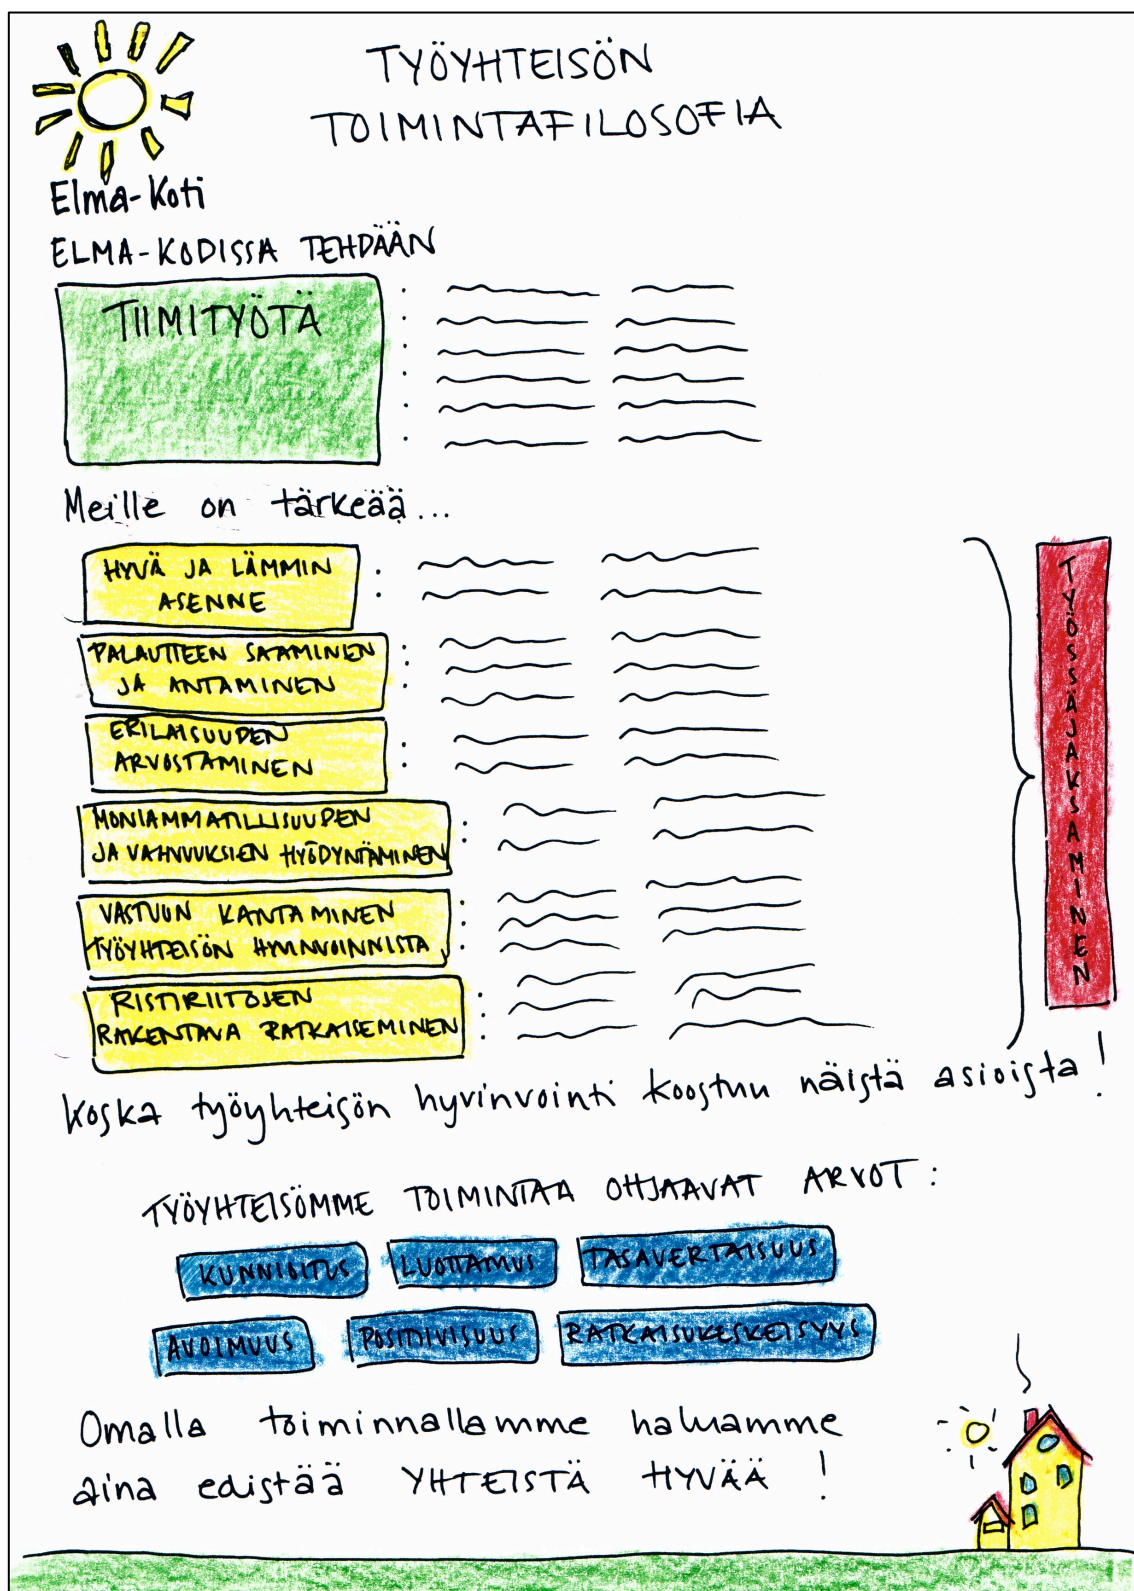 TYÖYHTEISÖN
TOIMINTAFILOSOFIA
Elma-Koti
ELMA-KODISSA TEHDÄÄN
TIIMITYÖTÄ
Meille on tärkeää...
HYVÄ JA LÄMMIN
ASENNE
PALAUTTEEN SAAMINEN
JA ANTAMINEN
ERILAISUUDEN
ARVOSTAMINEN
MONIAMMATILLISUUDEN
JA VAHVUUKSIEN HYÖDYNTÄMINEN
VASTUUN KANTAMINEN
TYÖYHTEISÖN HYVINVOINNISTA
RISTIRIITOJEN
RAKENTAVA RATKAISEMINEN
TYÖSSÄJAKSAMINEN
Koska työyhteisön hyvinvointi koostuu näistä asioista!
TYÖYHTEISÖMME TOIMINTAA OHJAAVAT ARVOT:
KUNNIOITUS LUOTTAMUS TASAVERTAISUUS
AVOIMUUS POSITIIVISUUS RATKAISUKESKEISYYS
Omalla toiminnallamme haluamme
aina edistää YHTEISTÄ HYVÄÄ!